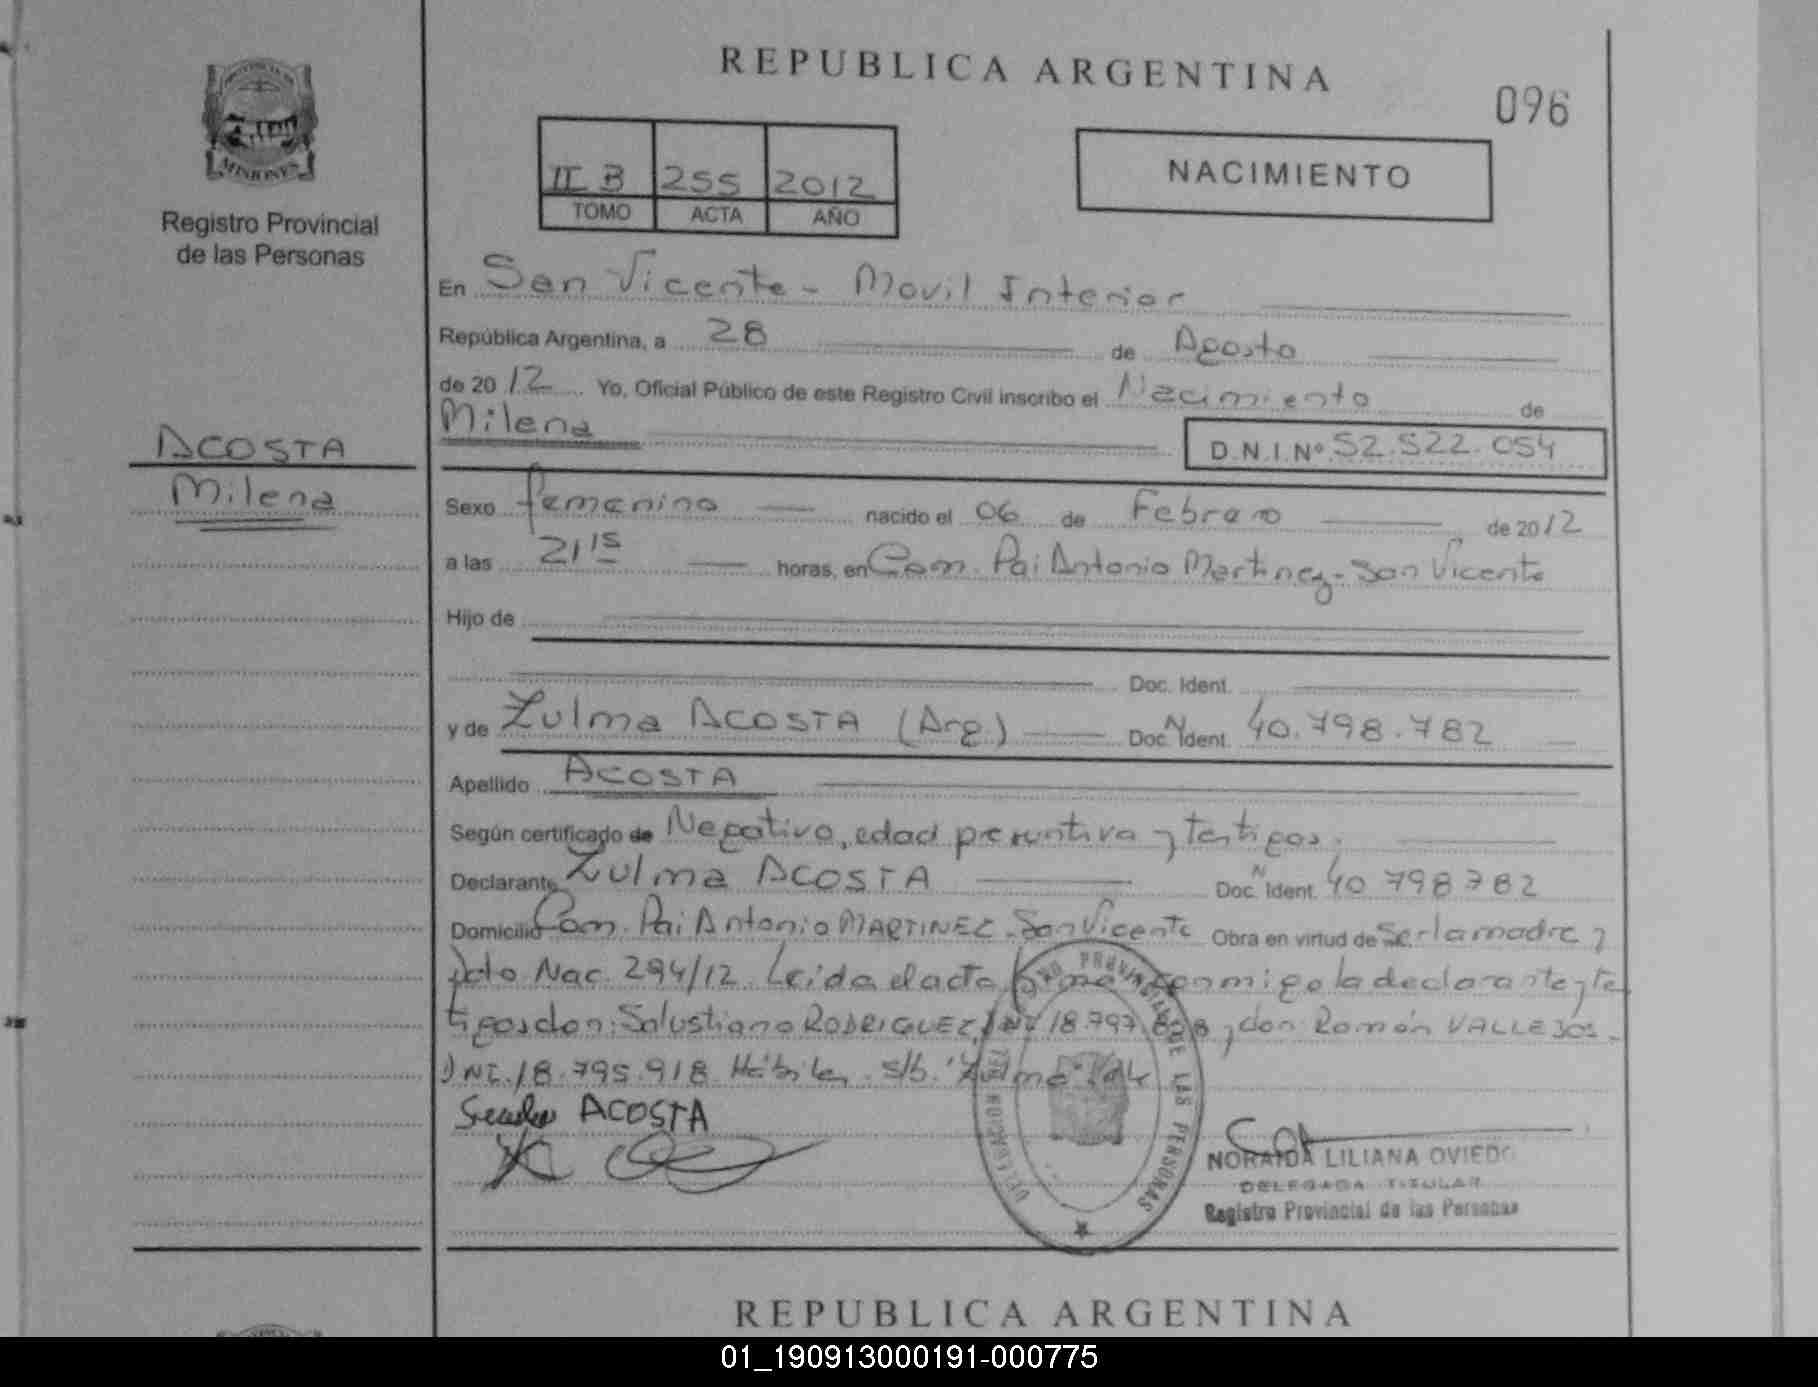 REPUBLICA ARGENTINA
096
PROVINCIA DE
MISIONES
Registro Provincial
de las Personas
II B 255 2012
TOMO ACTA AÑO
NACIMIENTO
En San Vicente - Movil Interior
República Argentina, a 28 de Agosto
de 2012 Yo, Oficial Público de este Registro Civil inscribo el Nacimiento de
Milena
D.N.I.Nº 52.522.054
ACOSTA
Milena
Sexo femenino nacido el 06 de Febrero de 2012
a las 21 15 horas, en Com. Pai Antonio Martinez - San Vicente
Hijo de
Doc. Ident.
y de Zulma ACOSTA (Arg.) Doc. N Ident. 40.798.782
Apellido ACOSTA
Según certificado de Negativo, edad presuntiva y testigos.
Declarante Zulma ACOSTA Doc. N Ident. 40 798 782
Domicilio Com. Pai Antonio MARTINEZ - San Vicente Obra en virtud de Ser la madre y
Nac. 294/12. Leida el acta firma conmigo la declarante y te
tigos don: Salustiano RODRIGUEZ DNI 18.797. y don Ramón VALLEJOS -
DNI. 18.795.918 Hábiles. s/b. "Zulma"
ACOSTA
REGISTRO PROVINCIAL DE LAS PERSONAS
DELEGACION
NORAIDA LILIANA OVIEDO
DELEGADA TITULAR
Registro Provincial de las Personas
REPUBLICA ARGENTINA
01_190913000191-000775